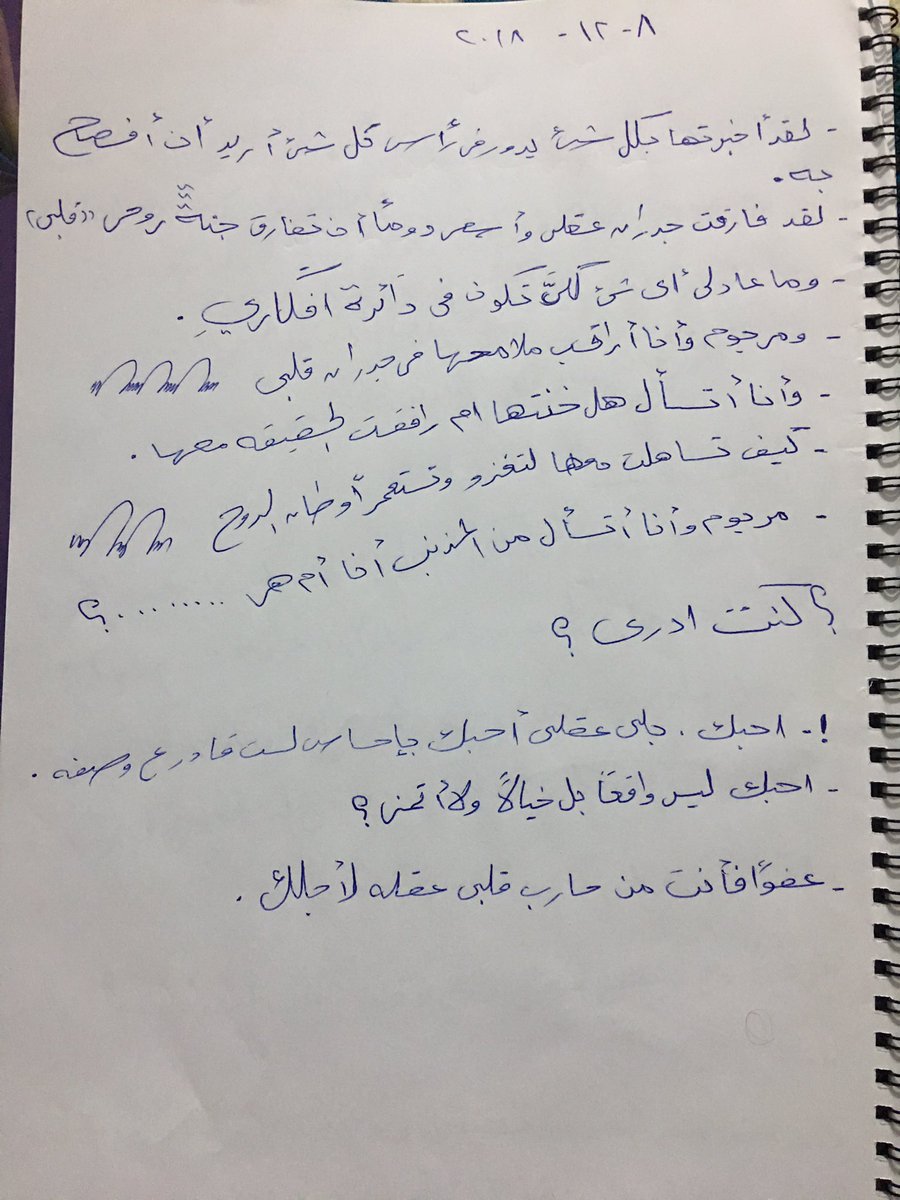 ٨-١٢-٢٠١٨
- لقد أخبرتها بكل شئ يدور فى رأسى كل شئ أريد أن أفصح
به.
- لقد فارقت جدران عقلى وأسعى دومًا أن تفارق جنة روحى "قلبى"
- وما عاد لى أى شئ لكى تكون فى دائرة افكاري.
- ومر يوم وأنا أراقب ملامحها فى جدران قلبى
- وأنا أتسأل هل خنتها ام رافقت الحقيقه معها.
- كيف تساهلت معها لتغزو وتستعمر أوطان الروح
- مر يوم وأنا أتسأل من المذنب أنا أم هى ..........؟
؟ كنت ادرى ؟
!- احبك . جلى عقلى أحبك بإحساس لست قادر ع وصفه.
- احبك ليس واقعًا بل خيالًا ولا أتمنى؟
- عفوًا فأنت من حارب قلبى عقله لأجلك.